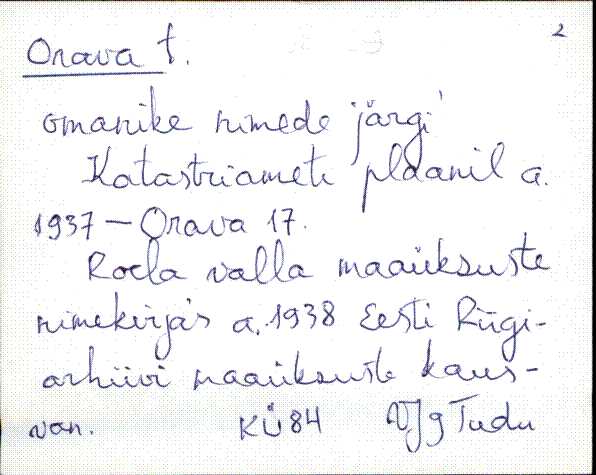 2
Orava t.
omanike nimede järgi
Katastriameti plaanil a.
1937 – Orava 17.
Roela valla maaüksuste
nimekirjas a. 1938 Eesti Riigi-
arhiivi maaüksuste kaus-
van. KÜ 84 VJg Tudu